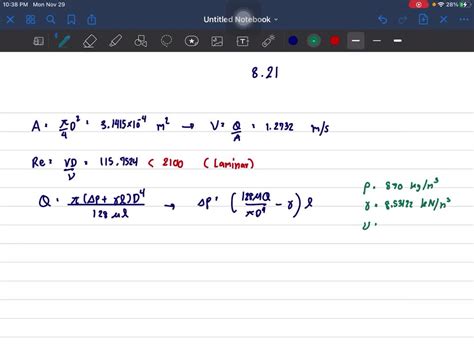 10:38 PM Mon Nov 29
28%
Untitled Notebook
8.21
A = π/4 D² = 3.1415×10⁻⁴ m² → V = Q/A = 1.2732 m/s
Re = VD/ν = 115.9524 < 2100 (Laminar)
Q = π(ΔP + γl)D⁴ / 128 μl → ΔP = (128μQ/πD⁴ − γ) l
ρ = 870 kg/m³
γ = 8.53122 kN/m³
ν =